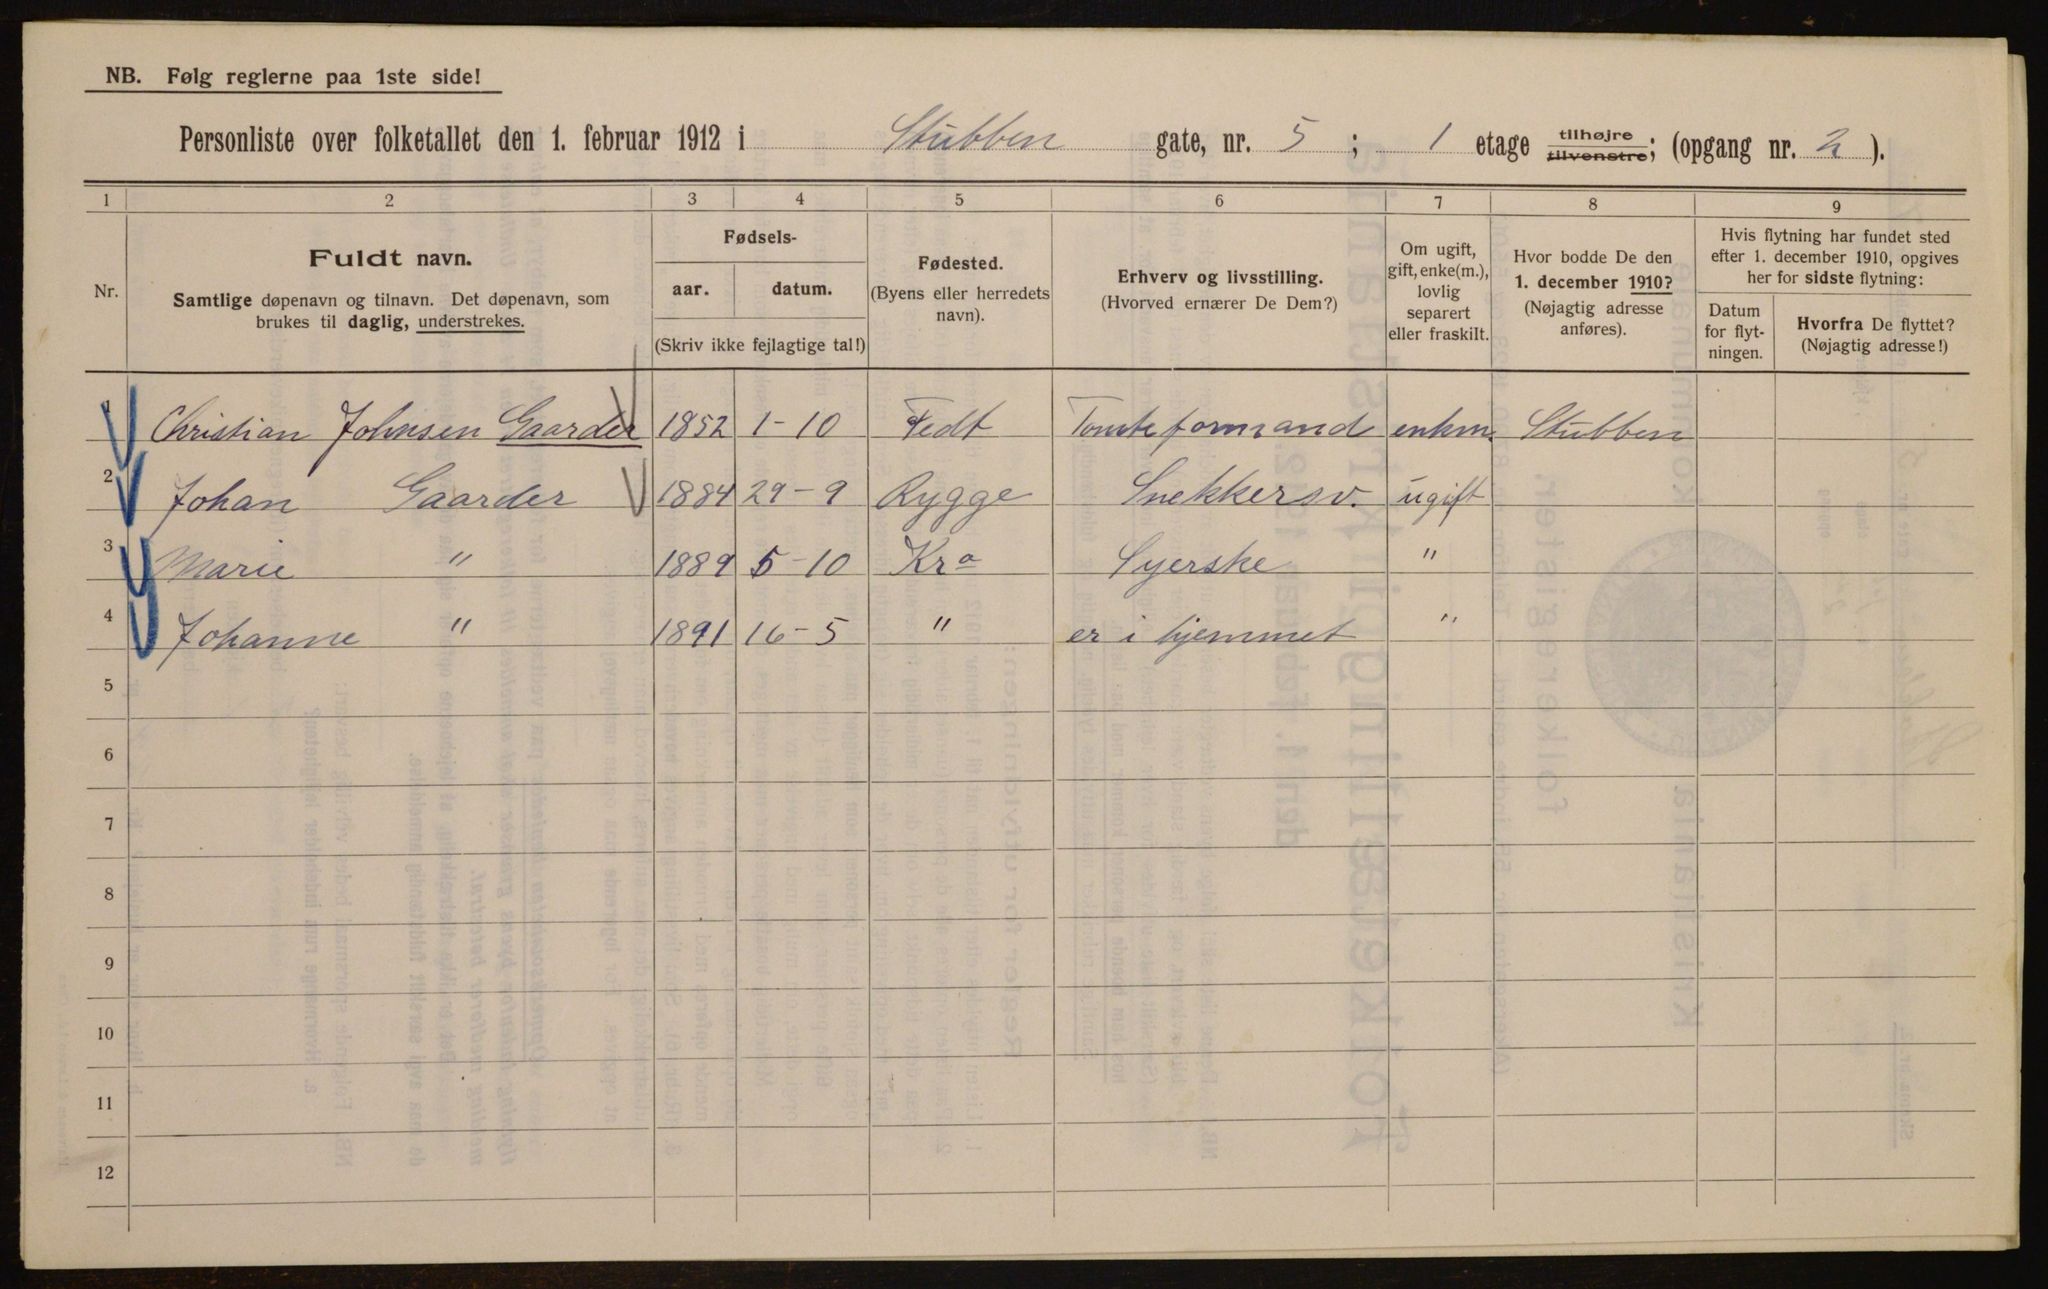 NB. Følg reglerne paa 1ste side!
Personliste over folketallet den 1. februar 1912 i Stubben gate, nr. 5 ; 1 etage tilhøjre tilvenstre; (opgang nr. 2 ).
1 2 3 4 5 6 7 8 9
Nr. Fuldt navn. Samtlige døpenavn og tilnavn. Det døpenavn, som brukes til daglig, understrekes.
Fødsels- aar. datum. (Skriv ikke fejlagtige tal!)
Fødested. (Byens eller herredets navn).
Erhverv og livsstilling. (Hvorved ernærer De Dem?)
Om ugift, gift, enke(m.), lovlig separert eller fraskilt.
Hvor bodde De den 1. december 1910? (Nøjagtig adresse anføres).
Hvis flytning har fundet sted efter 1. december 1910, opgives her for sidste flytning:
Datum for flyt- ningen.
Hvorfra De flyttet? (Nøjagtig adresse!)
1 Christian Johnsen Gaarder 1852 1-10 Fedt Tomteformand enkm. Stubben
2 Johan Gaarder 1884 29-9 Rygge Snekkersv. ugift
3 Marie " 1889 5-10 Kra Syerske "
4 Johanne " 1891 16-5 " er i hjemmet "
5
6
7
8
9
10
11
12